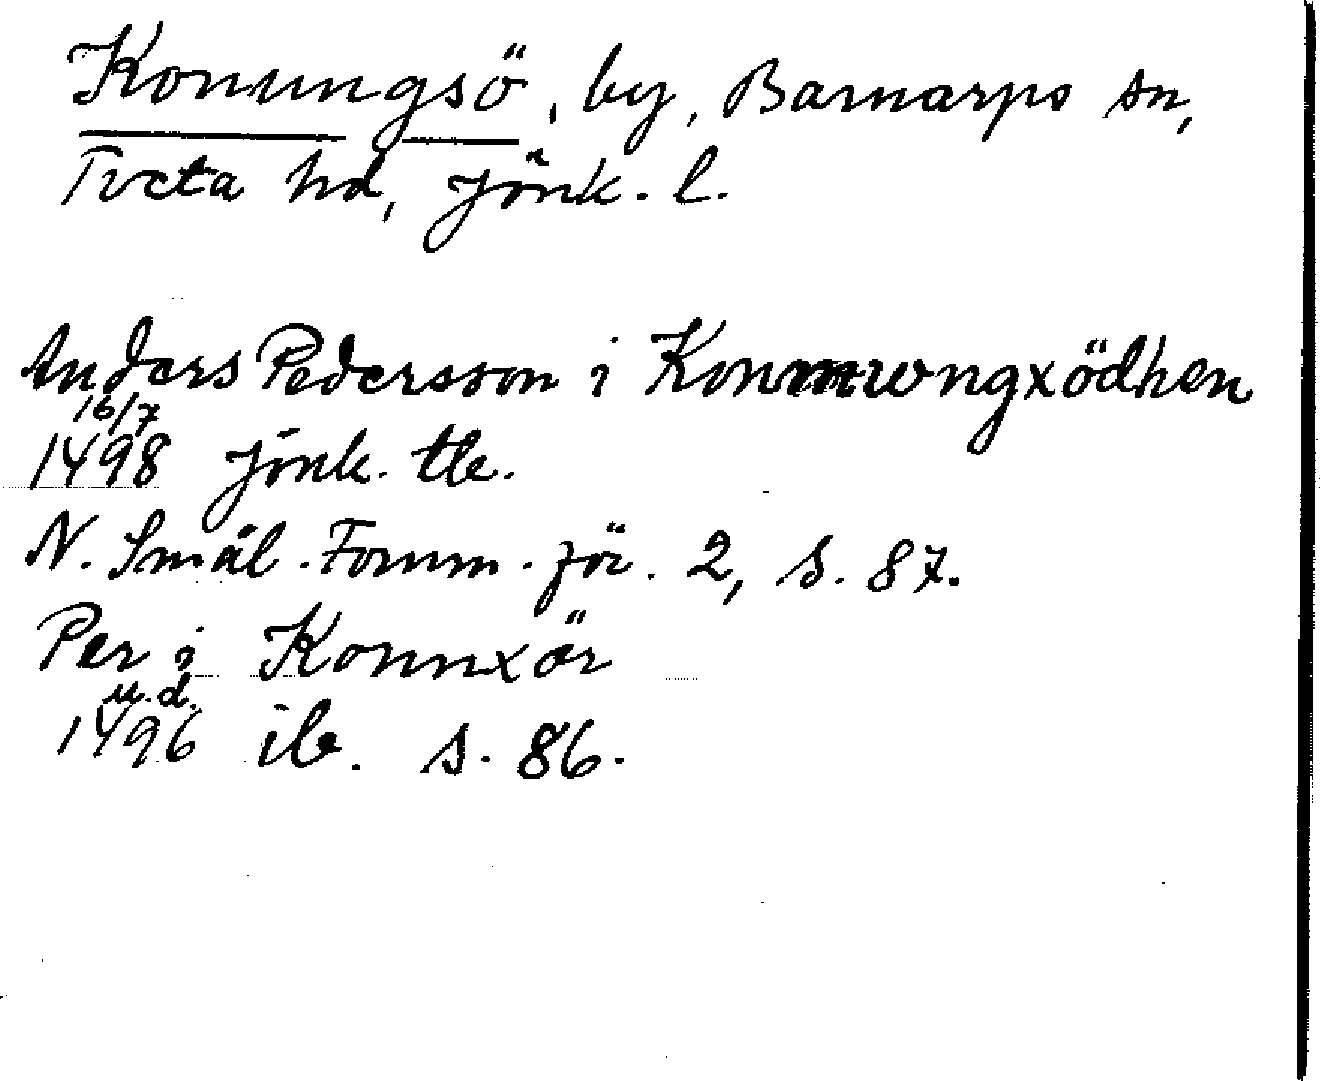 Konungsö, by, Barnarps sn,
Tveta hd, Jönk. l.
Anders Pedersson i Konnwngxödhen
16/7
1498 Jönk. tb.
N. Smål. Fornm. för. 2, s. 87.
Per i Konnxör
u.d.
1496 ib. s. 86.